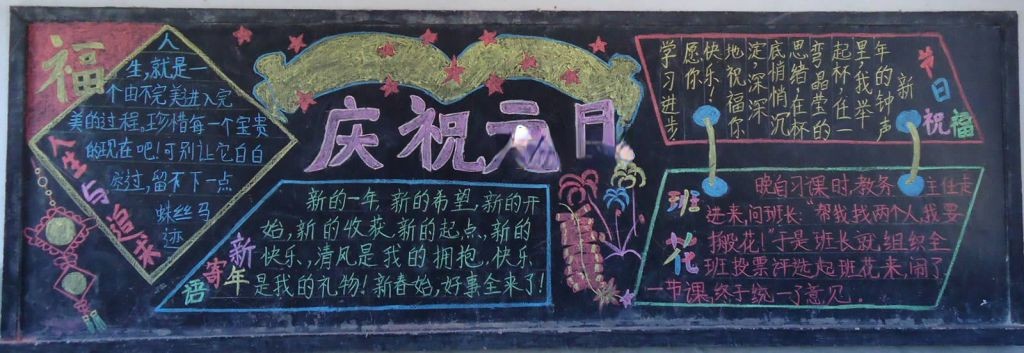 福
人生与追求
人
生,就是一
个由不完美进入完
美的过程,珍惜每一个宝贵
的现在吧!可别让它白白
流过,留不下一点
蛛丝马
迹
庆祝元旦
新年寄语
新的一年,新的希望,新的开
始,新的收获,新的起点,新的
快乐,清风是我的拥抱,快乐
是我的礼物!新春始,好事全来了!
节日祝福
新
年的钟声
里,我举
起杯,任一
弯晶莹的
思绪,在杯
底悄悄沉
淀,深深
地祝福你
快乐!
愿你
学习进步
班花
晚自习课时,教务主任走
进来,问班长:"帮我找两个人,我要
搬花!"于是班长说,组织全
班投票评选起班花来,闹了
一节课,终于统一了意见.